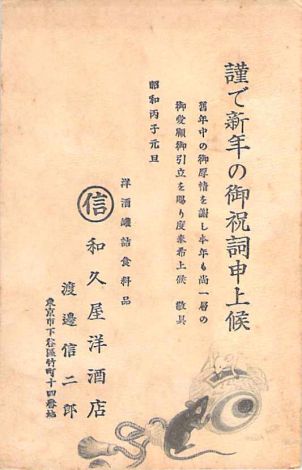 謹で新年の御祝詞申上候
舊年中の御厚情を謝し本年も尚一層の
御愛顧御引立を賜り度奉希上候 敬具
昭和丙子元旦
洋酒罐詰食料品
信 和久屋洋酒店
渡邊信二郎
東京市下谷區竹町十四番地